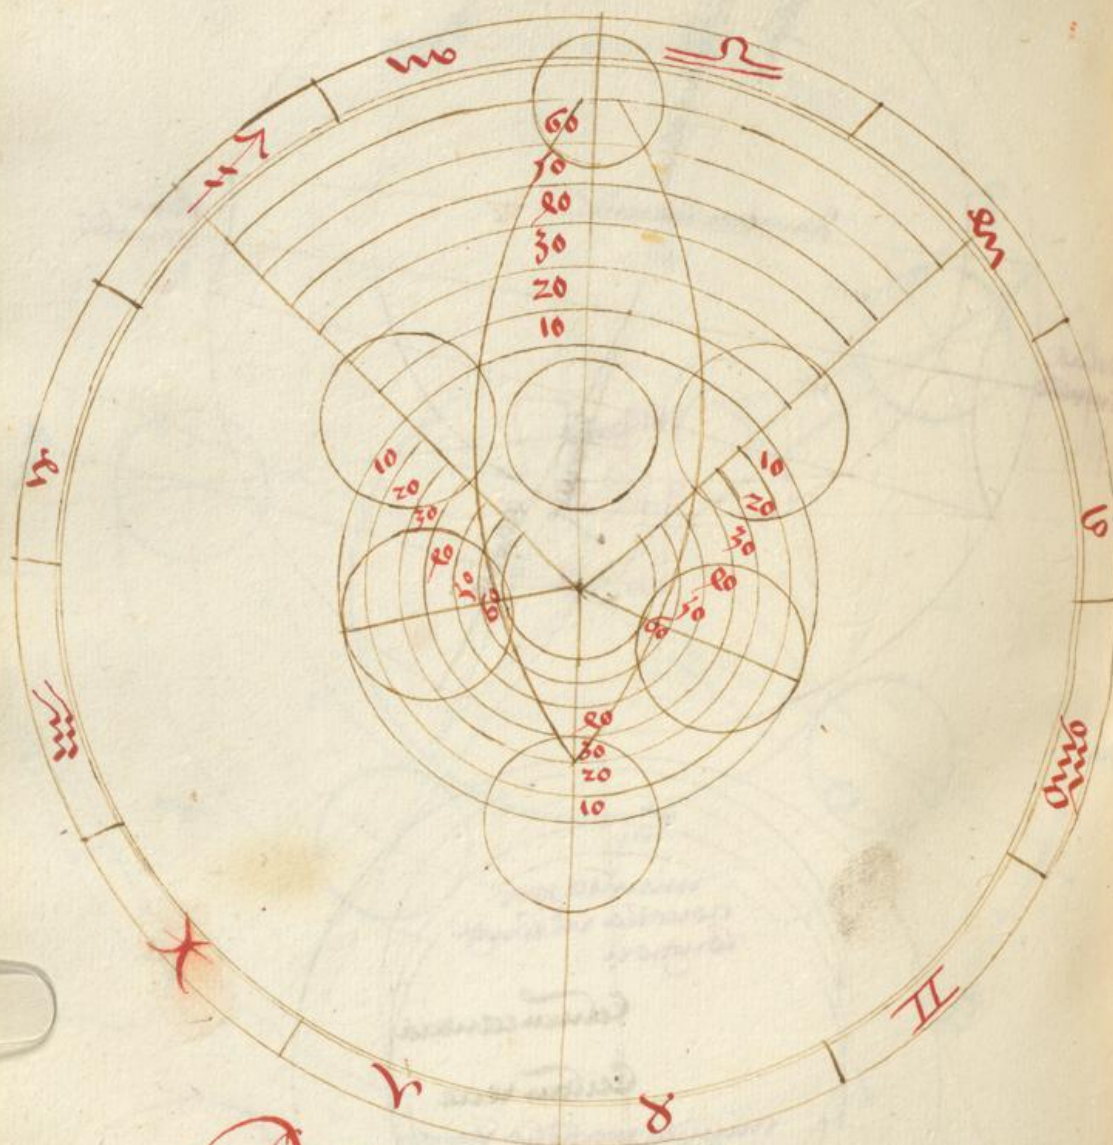 ♏ ♎
♐
♍
60
50
40
30
20
10
♑
♌
10
20
30
40
50
60
10
20
30
40
50
60
♒
♋
40
30
20
10
♓
♊
♈
♉